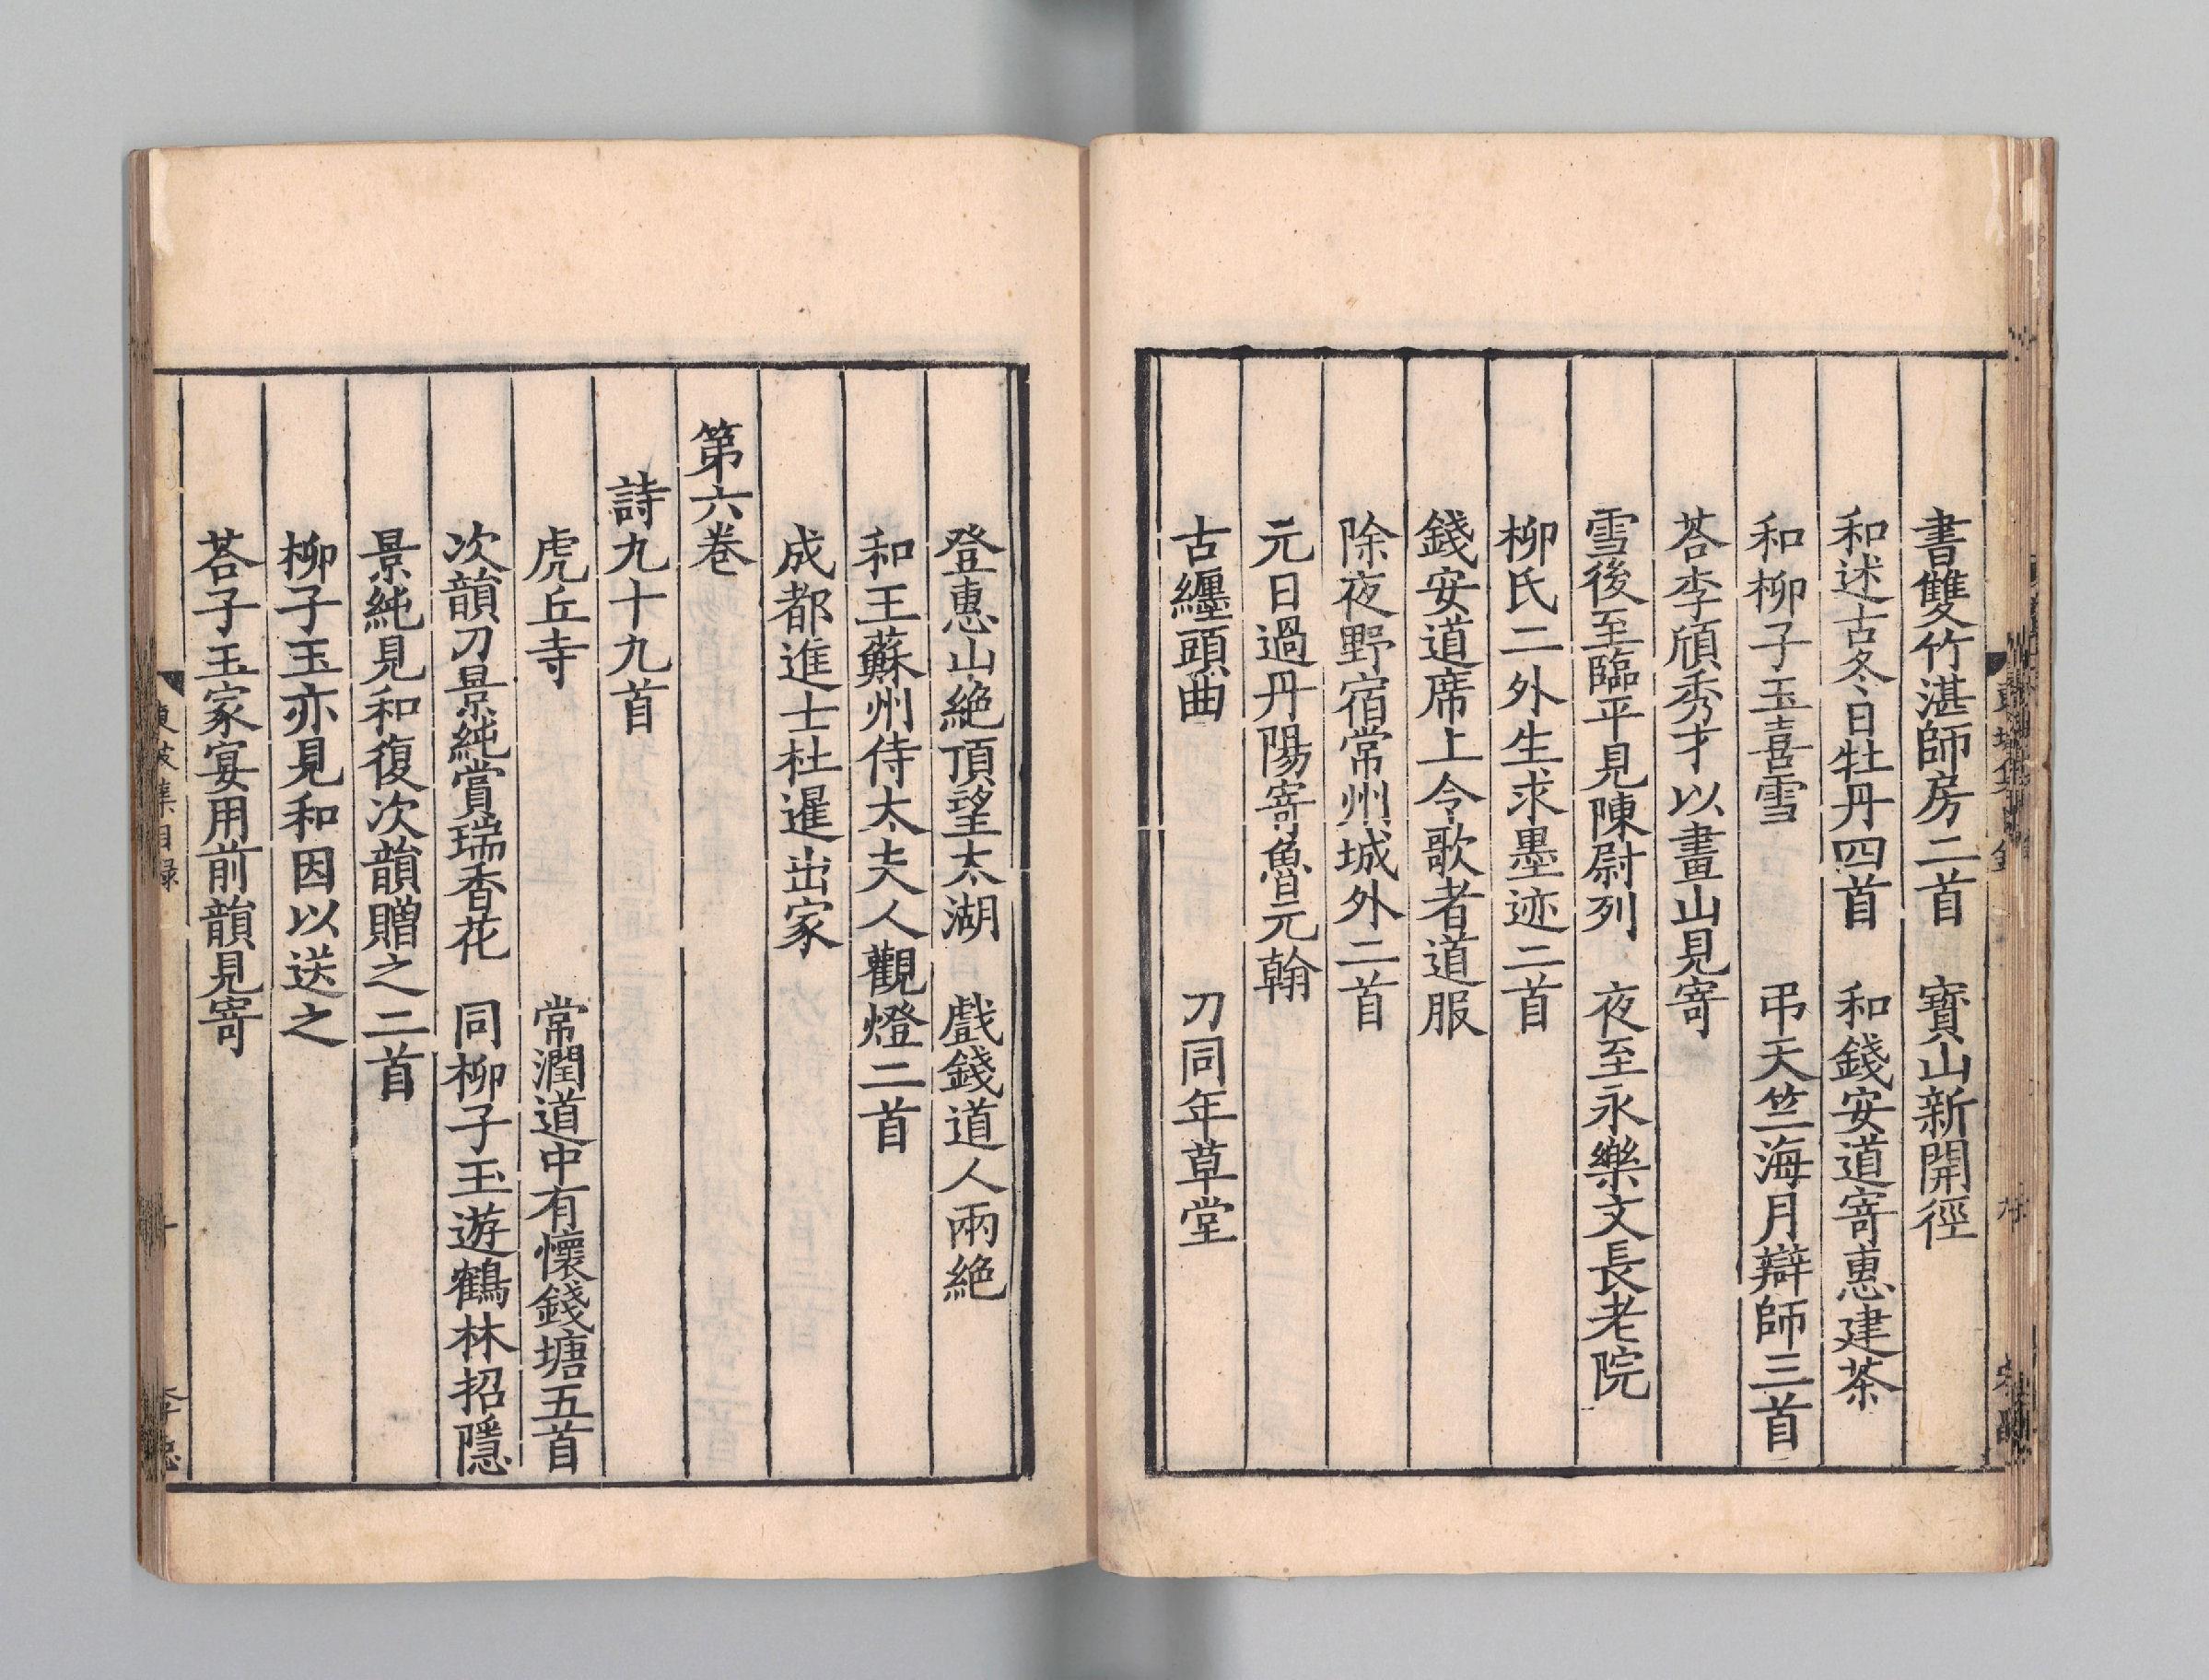 書雙竹湛師房二首　寶山新開徑
和述古冬日牡丹四首　和錢安道寄惠建茶
和柳子玉喜雪　弔天竺海月辯師三首
荅李頎秀才以畫山見寄
雪後至臨平見陳尉列　夜至永樂文長老院
柳氏二外生求墨迹二首
錢安道席上令歌者道服
除夜野宿常州城外二首
元日過丹陽寄魯元翰
古纏頭曲　刀同年草堂
登惠山絶頂望太湖　戲錢道人兩絶
和王蘇州侍太夫人觀燈二首
成都進士杜暹出家
第六卷
詩九十九首
虎丘寺　常潤道中有懷錢塘五首
次韻刀景純賞瑞香花　同柳子玉遊鶴林招隱
景純見和復次韻贈之二首
柳子玉亦見和因以送之
荅子玉家宴用前韻見寄
東坡集目録